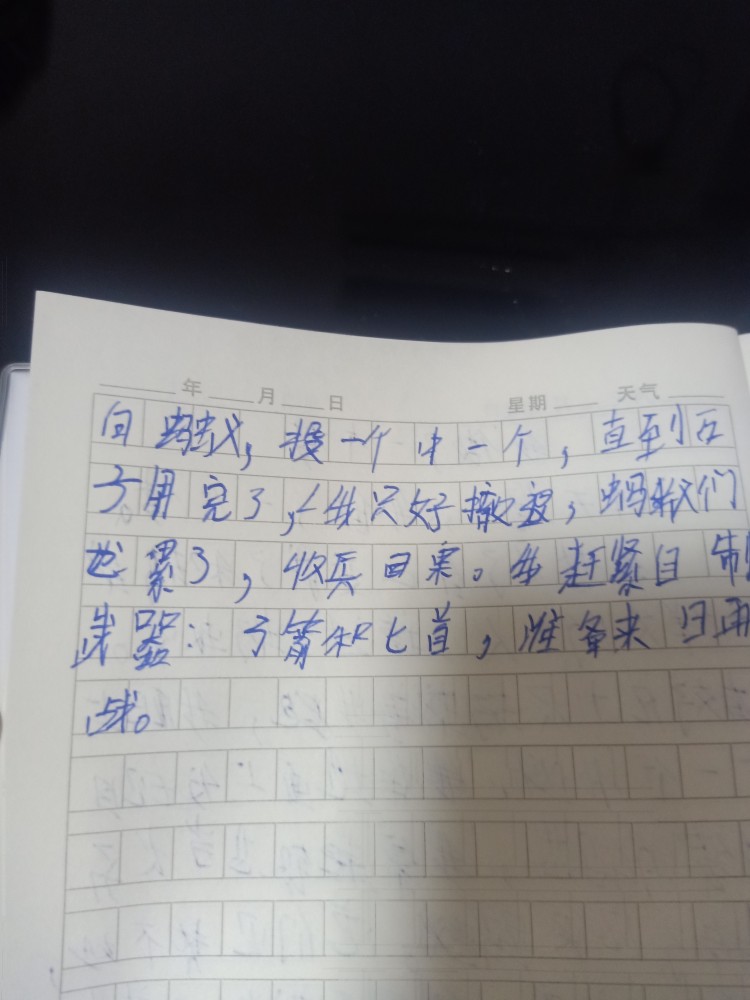 年 月 日 星期 天气
向蚂蚁，投一个中一个，直到石
子用完了，我只好撤退，蚂蚁们
也累了，收兵回巢。我赶紧自制
武器：弓箭和匕首，准备来日再
战。